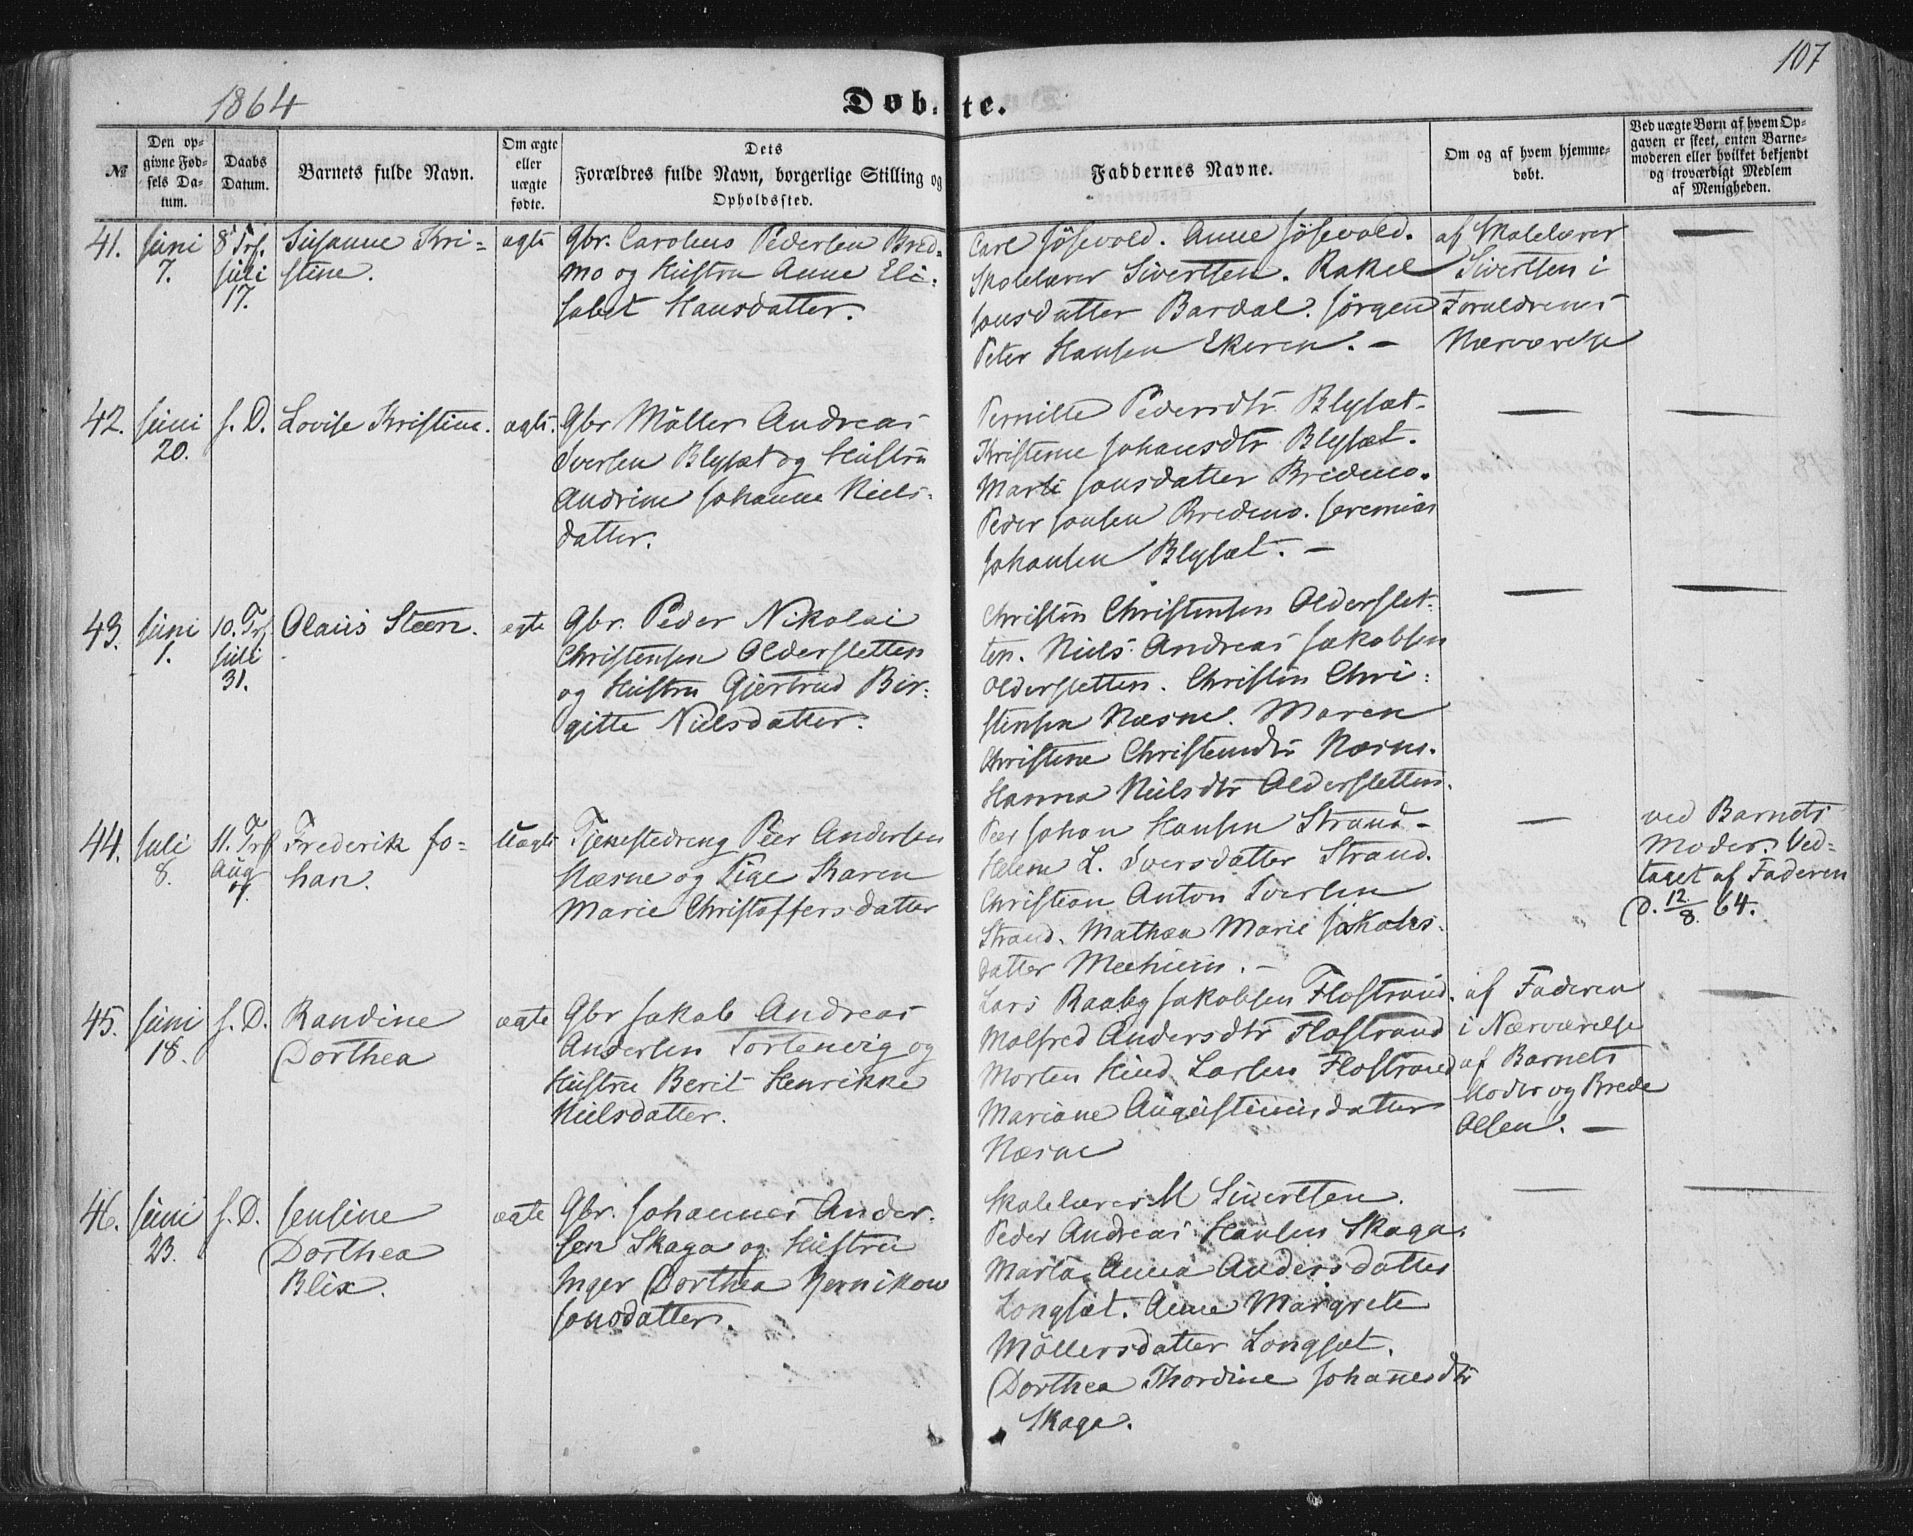 107
1864
Døbte.
№
Den opgivne Fødsels Datum.
Daabs Datum.
Barnets fulde Navn.
Om ægte eller uægte fødte.
Dets Forældres fulde Navn, borgerlige Stilling og Opholdssted.
Faddernes Navne.
Om og af hvem hjemmedøbt.
Ved uægte Børn af hvem Opgaven er skeet, enten Barnemoderen eller hvilket bekjendt og troværdigt Medlem af Menigheden.
41. Juni 7.
8 Trf. Juli 17.
Susanne Kri-
stine.
ægte
Gbr. Carolus Pedersen Bred-
mo og Hustru Anne Eli-
sabet Hansdatter.
Carl Jøsevold. Anne Jøsevold.
Skolelærer Sivertsen. Rakel
Jonsdatter Bardal. Jørgen
Peter Hansen Ekeren. –
af Skolelærer
Sivertsen i
Forældrenes
Nærværelse
—
42. Juni 20.
s. D.
Lovise Kristine.
ægte.
Gbr Møller Andreas
Iversen Blysæt og Hustru
Andrine Johanne Niels-
datter.
Pernille Pedersdtr Blysæt.
Kristine Johansdtr Blysæt.
Marti Jonsdatter Bredmo.
Peder Jonsen Bredmo. Jeremias
Johansen Blysæt. –
—
—
43. Juni 1.
10. Trf Juli 31.
Olaus Steen.
ægte
Gbr. Peder Nikolai
Christensen Oldersletten
og Hustru Gjertrud Bir-
gitte Nielsdatter.
Christen Christensen Olderslet-
ten. Niels Andreas Jakobsen
Oldersletten. Christen Chri-
stensen Næsne. Maren
Christine Christensdtr Næsne.
Hanna Nielsdtr Oldersletten.
—
—
44. Juli 8.
11. Trf Aug 7.
Frederik Jo-
han.
Uægte
Tjenestedreng Peer Andersen
Næsne og Pige Karen
Marie Christoffersdatter
Peer Johan Hansen Strand –
Helene L. Iversdatter Strand.
Christian Anton Iversen
Strand. Mathea Marie Jakobs-
datter
—
ved Barnets
Moder. Ved-
taget af Faderen
D. 12/8 64.
45. Juni 18.
s. D.
Randine
Dorthea
ægte
Gbr Jakob Andreas
Andersen Tortenvig og
Hustru Berit Henrikke
Nielsdatter.
Lars Raaby Jakobsen Flostrand.
Malfred Andersdtr Flostrand
Morten Hind Larsen Flostrand
Mariane Augustinusdatter
Næsne
af Faderen
i Nærværelse
af Barnets
Moder og Brede
Olsen. —
—
46. Juni 23.
s. D.
Jensine
Dorthea
Blix.
ægte
Gbr. Johannes Ander-
sen Skaga og Hustru
Inger Dorthea
Jonsdatter.
Skolelærer M Sivertsen.
Peder Andreas Hansen Skaga.
Marta Anna Andersdatter
Longsæt. Anne Margrete
Møllersdatter Longsæt.
Dorthea Thordine Johannesdtr
Skaga.
—
—